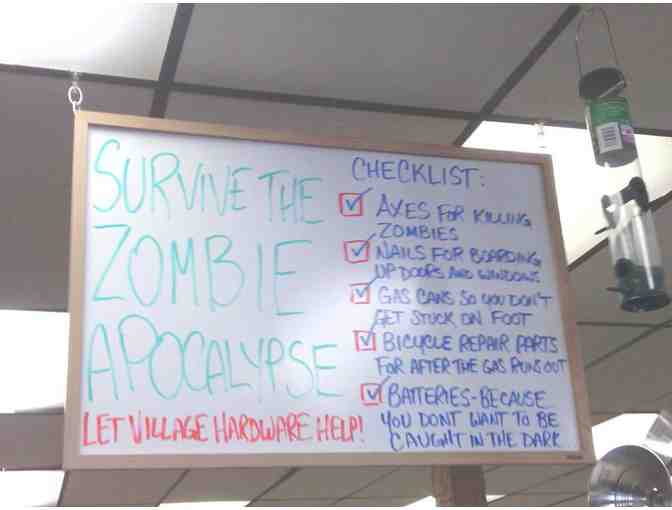 SURVIVE THE
ZOMBIE
APOCALYPSE
LET VILLAGE HARDWARE HELP!
CHECKLIST:
AXES FOR KILLING
ZOMBIES
NAILS FOR BOARDING
UP DOORS AND WINDOWS
GAS CANS SO YOU DON'T
GET STUCK ON FOOT
BICYCLE REPAIR PARTS
FOR AFTER THE GAS RUNS OUT
BATTERIES-BECAUSE
YOU DONT WANT TO BE
CAUGHT IN THE DARK